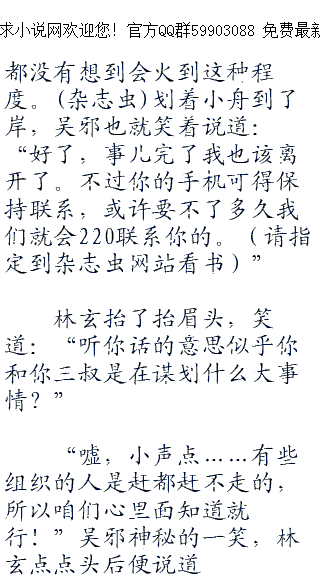 求小说网欢迎您! 官方QQ群59903088 免费最新
都没有想到会火到这种程
度。(杂志虫)划着小舟到了
岸，吴邪也就笑着说道：
“好了，事儿完了我也该离
开了。不过你的手机可得保
持联系，或许要不了多久我
们就会220联系你的。（请指
定到杂志虫网站看书）”
林玄抬了抬眉头，笑
道：“听你话的意思似乎你
和你三叔是在谋划什么大事
情？”
“嘘，小声点……有些
组织的人是赶都赶不走的，
所以咱们心里面知道就
行！”吴邪神秘的一笑，林
玄点点头后便说道